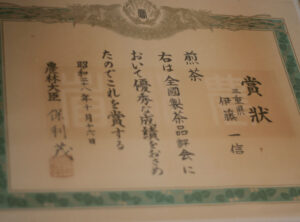 賞状
三重県
伊藤一信
煎茶
右は全國製茶品評会に
おいて優秀な成績をおさめ
たのでこれを賞する
昭和二八年十月十六日
農林大臣 保利茂